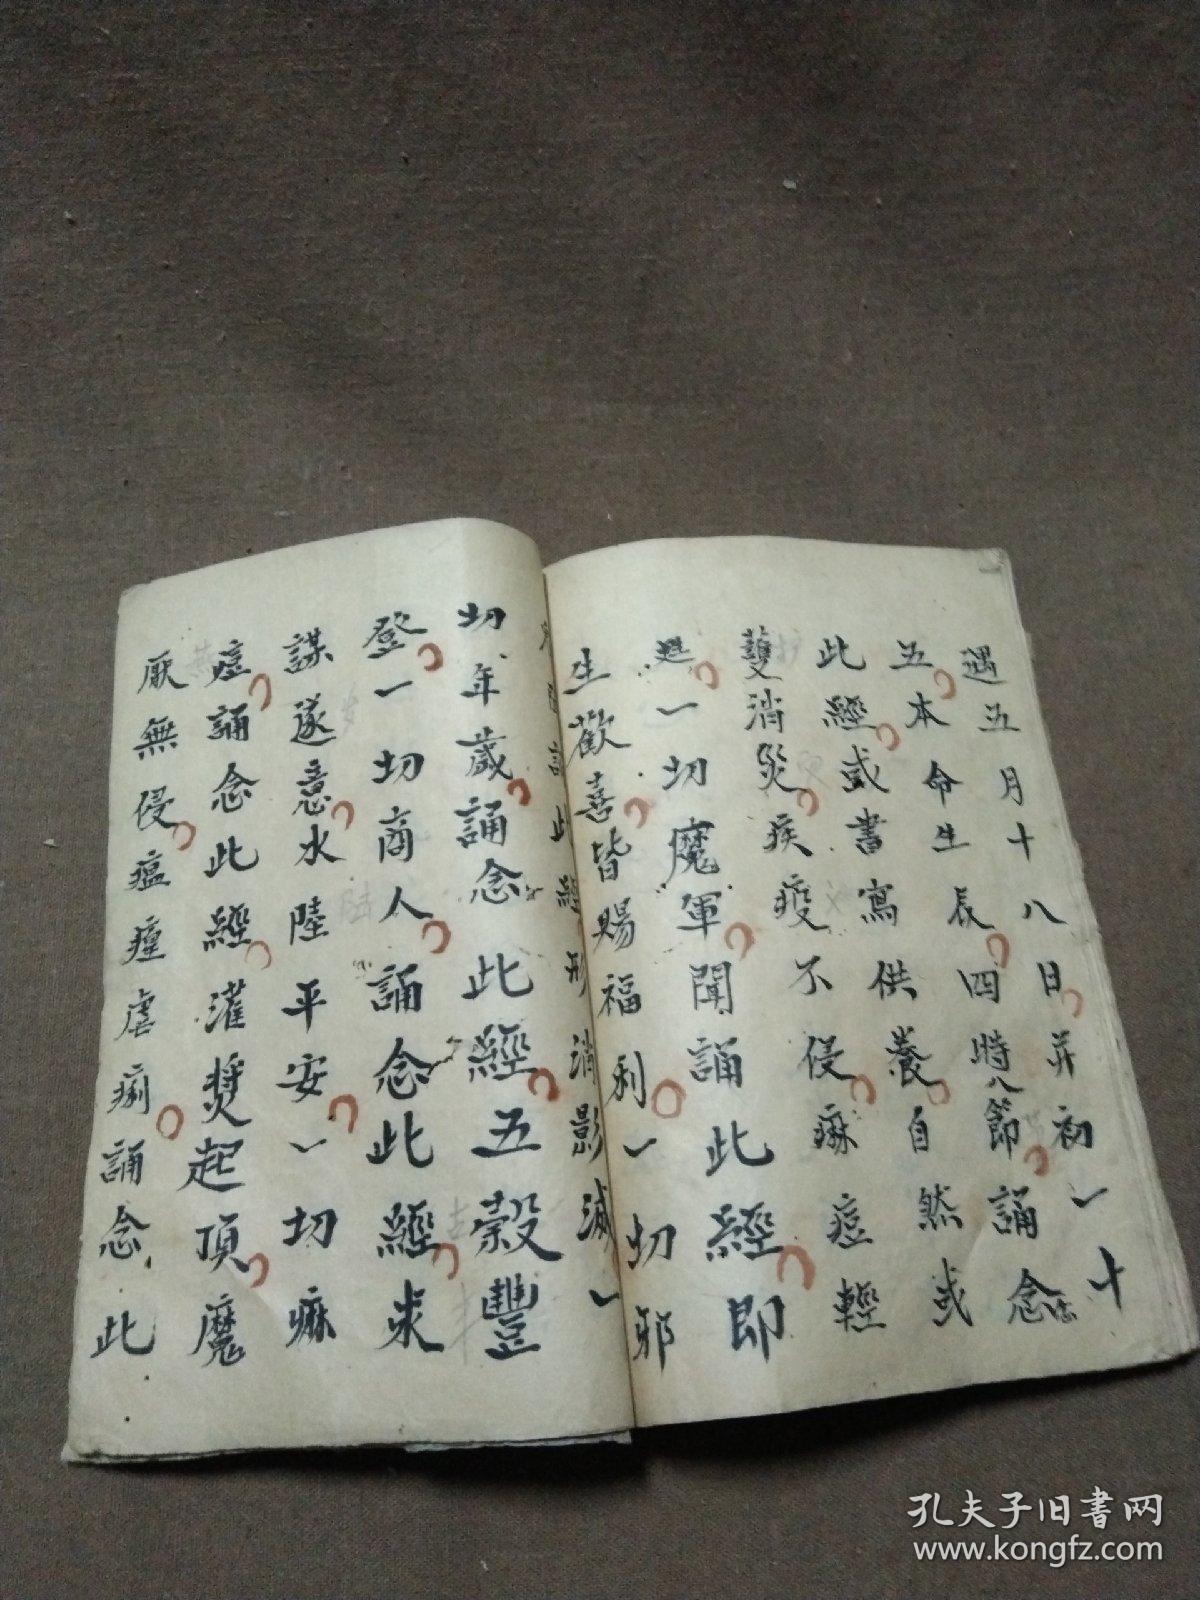 遇五月十八日并初一十
五本命生辰四時八節誦念
此經或書寫供養自然或
護消災疾疫不侵痲痘輕
一切魔軍聞誦此經即
生歡喜皆賜福利一切邪
誦此經形消影滅一
切年歲誦念此經五穀豐
登一切商人誦念此經求
謀遂意水陸平安一切痲
痘誦念此經灌漿起頂魔
厭無侵瘟瘴虐痢誦念此
孔夫子旧书网
www.kongfz.com